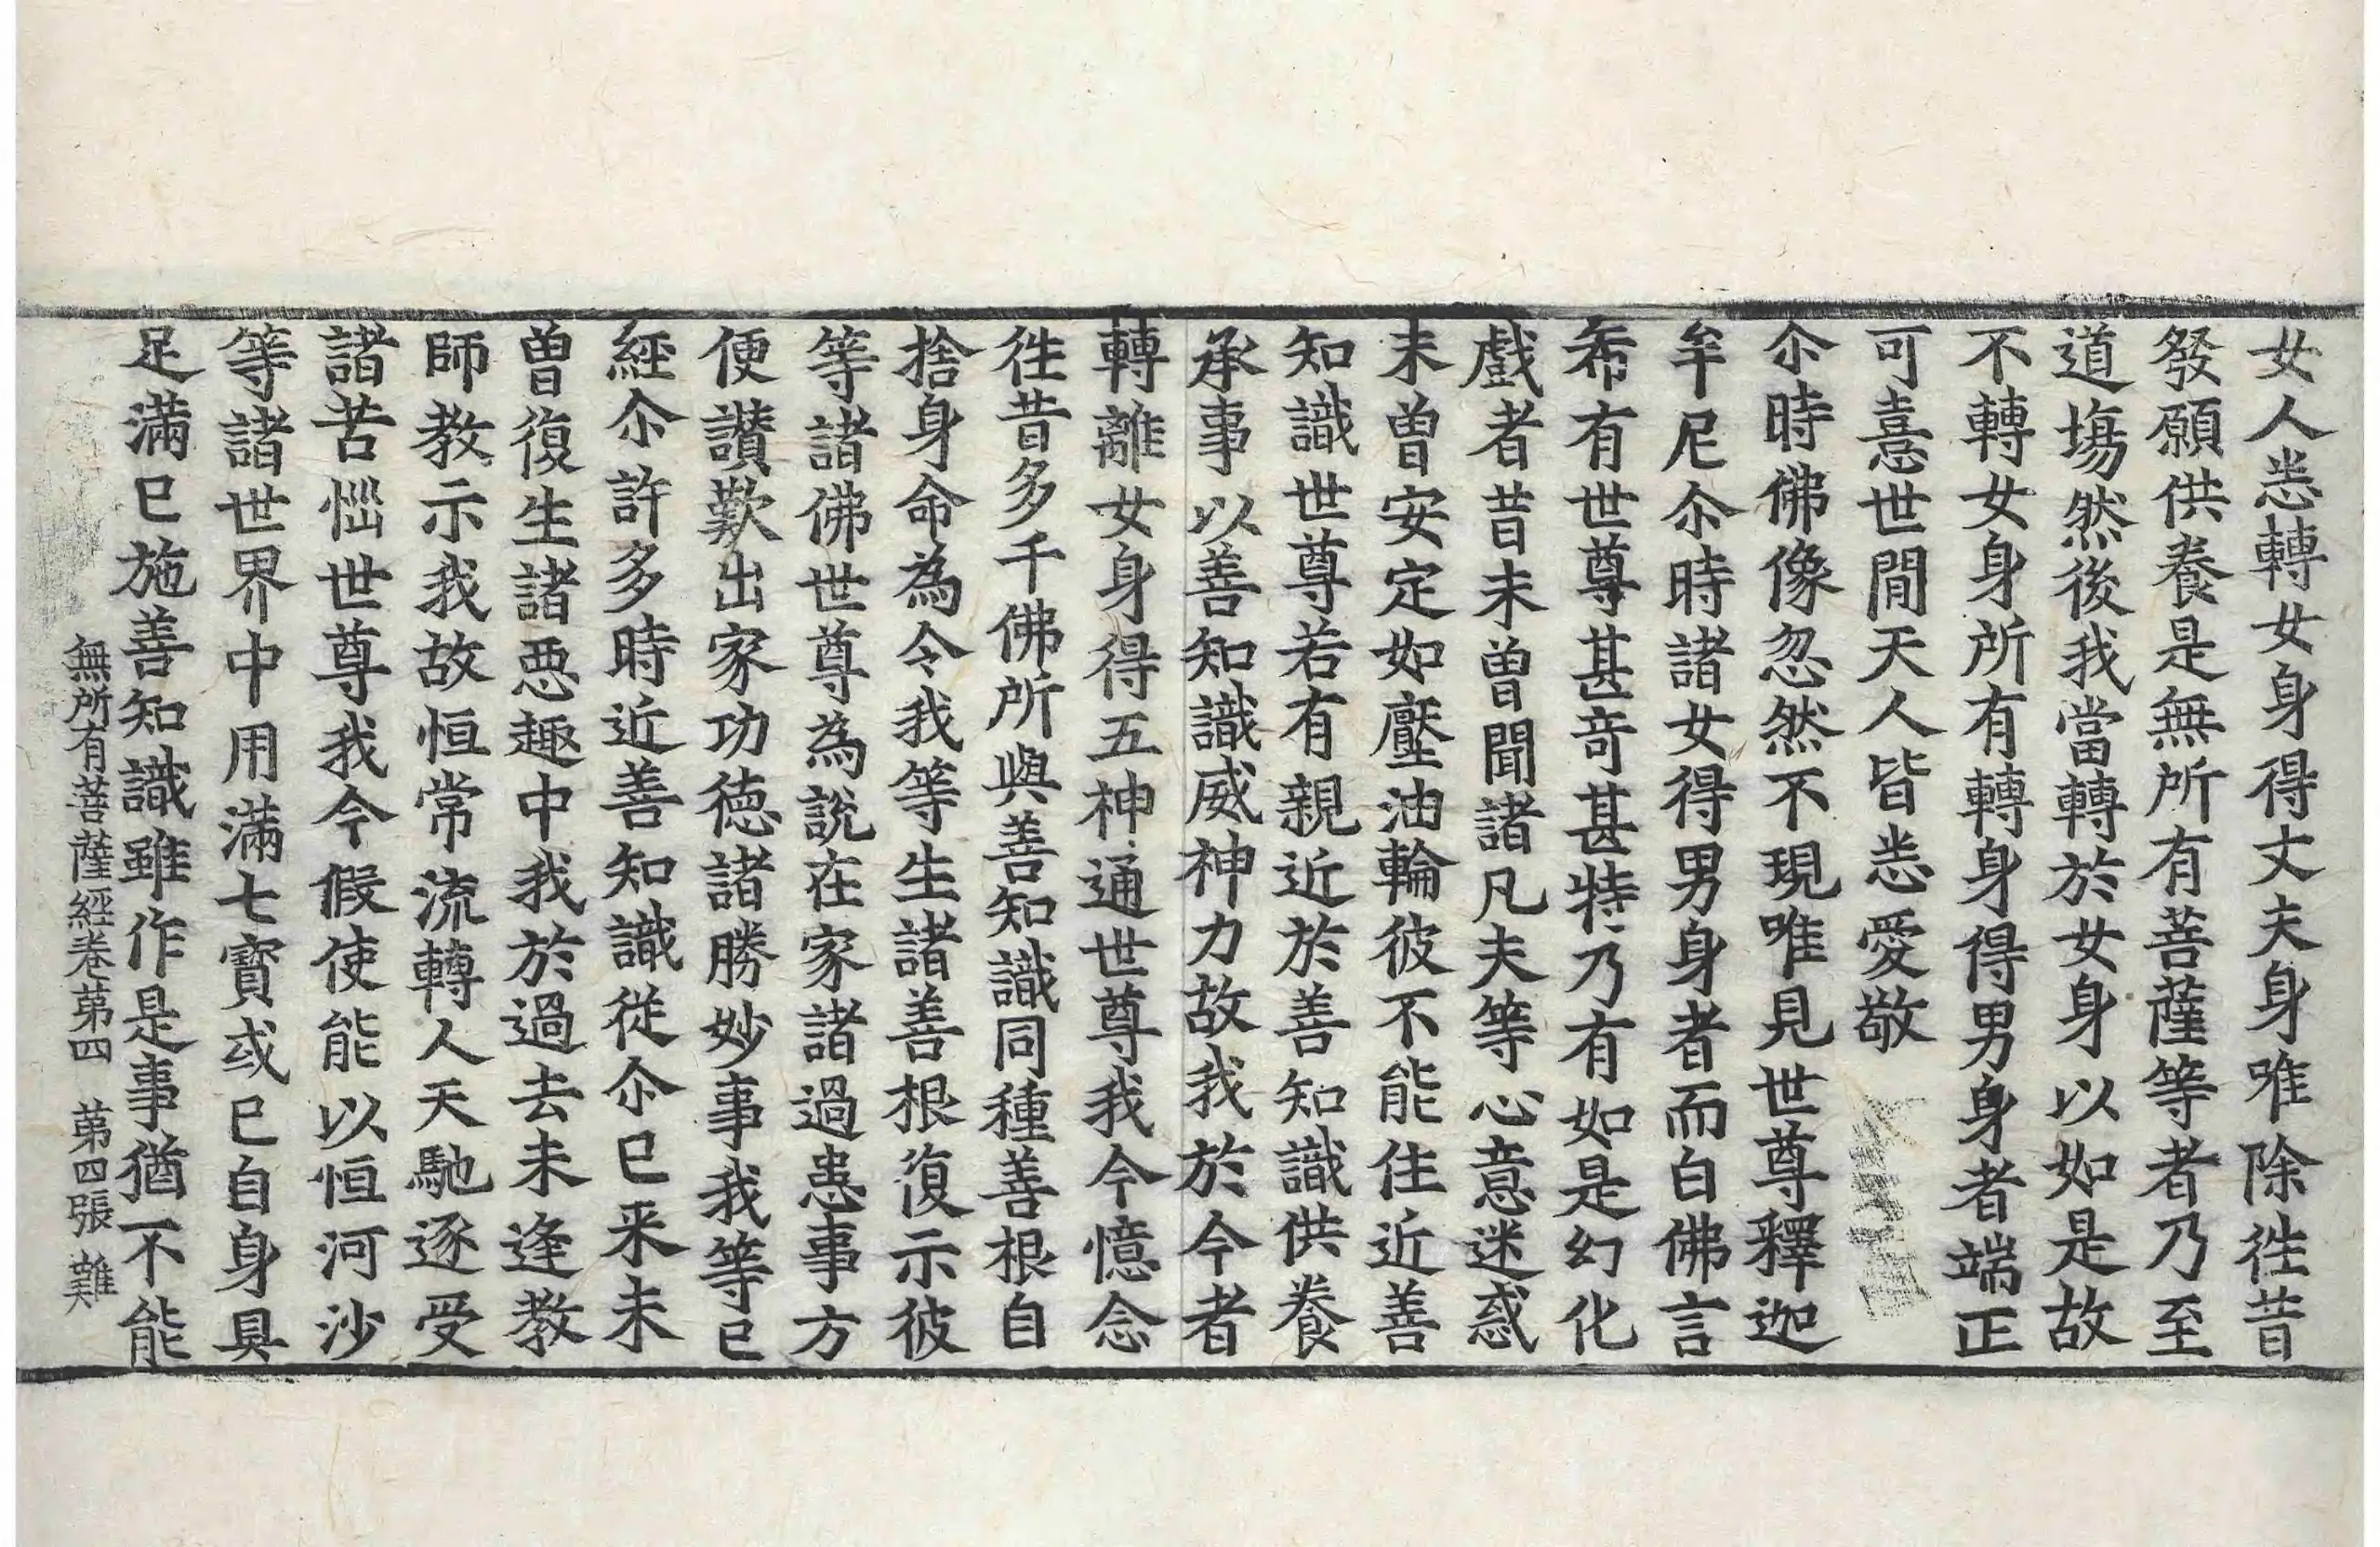 女人悉轉女身得丈夫身唯除徃昔
發願供養是無所有菩薩等者乃至
道塲然後我當轉於女身以如是故
不轉女身所有轉身得男身者端正
可憙世間天人皆悉愛敬
尒時佛像忽然不現唯見世尊釋迦
牟尼尒時諸女得男身者而白佛言
希有世尊甚奇甚特乃有如是幻化
戱者昔未曽聞諸凡夫等心意迷惑
未曽安定如壓油輪彼不能住近善
知識世尊若有親近於善知識供養
承事以善知識威神力故我於今者
轉離女身得五神通世尊我今憶念
徃昔多千佛所與善知識同種善根自
捨身命為令我等生諸善根復示彼
等諸佛世尊為說在家諸過患事方
便讃歎出家功德諸勝妙事我等已
經尒許多時近善知識從尒已来未
曽復生諸惡趣中我於過去未逢教
師教示我故恒常流轉人天馳逐受
諸苦惱世尊我今假使能以恒河沙
等諸世界中用滿七寳或已自身具
足滿已施善知識雖作是事猶不能
無所有菩薩經卷第四 第四張 難